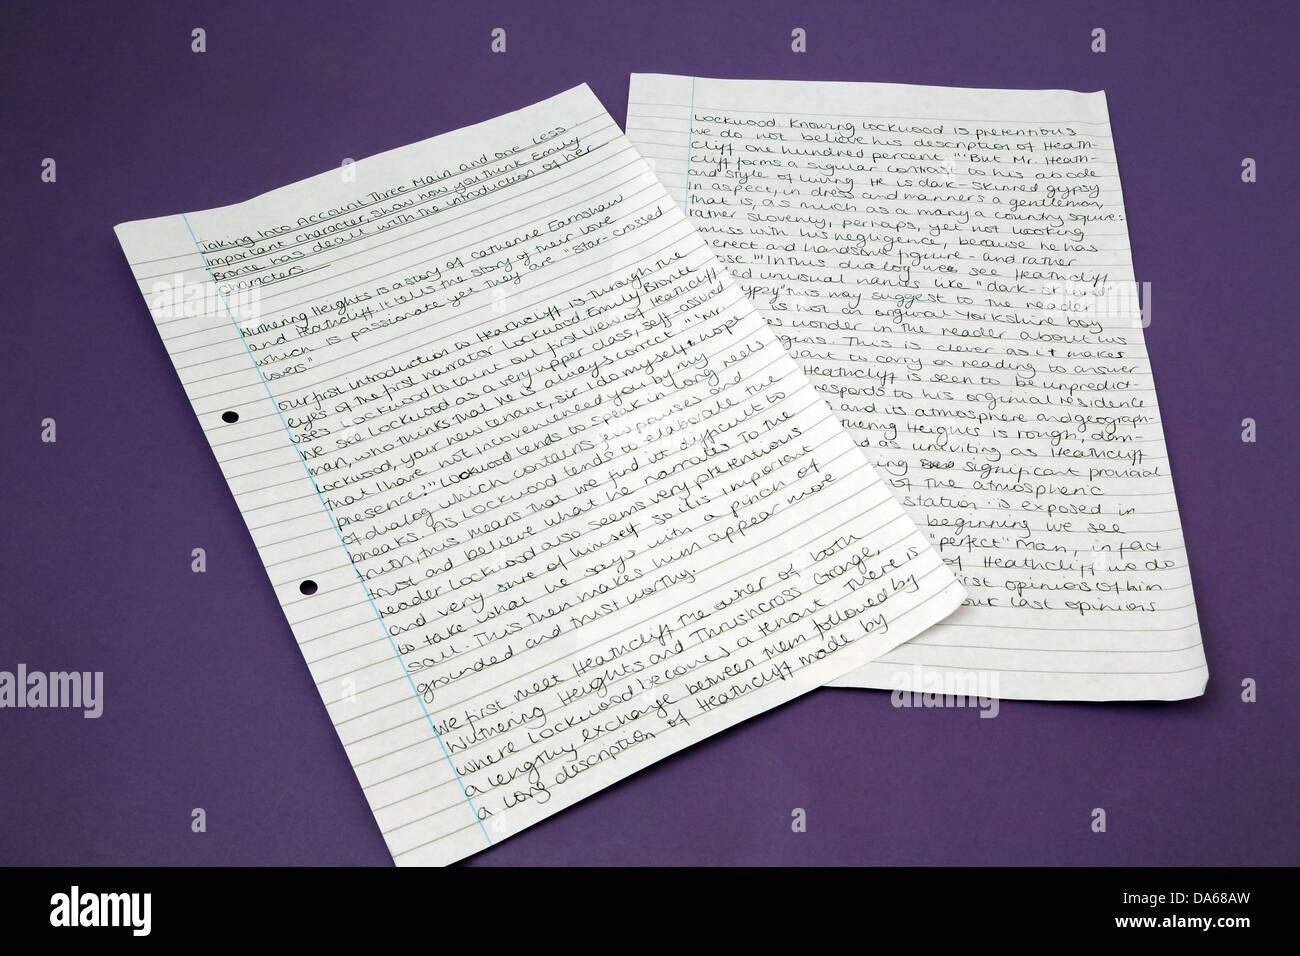 Taking Into Account Three Main and one Less
important character, show how you think Emily
Bronte has dealt with the introduction of her
characters.
Wuthering Heights is a story of Catherine Earnshaw
and Heathcliff. It tells the story of their love
which is passionate yet they are "Star-crossed
lovers."
Our first introduction to Heathcliff is through the
eyes of the first narrator Lockwood. Emily Bronte
uses Lockwood to taint our first view of Heathcliff
We see Lockwood as a very upper class, self-assured
man, who thinks that he is always correct "'Mr.
Lockwood, your new tenant, sir. I do myself hope
that I have not inconvenienced you by my
presence.'" Lockwood tends to speak in long reels
of dialog which contains long pauses and
breaks. As Lockwood tends to elaborate the
truth, this means that we find it difficult to
trust and believe what he narrates to the
reader. Lockwood also seems very pretentious
and very sure of himself so it is important
to take what he says with a pinch of
salt. This then makes him appear more
grounded and trust worthy.
We first meet Heathcliff the owner of both
Wuthering Heights and Thrushcross Grange,
where Lockwood becomes a tenant. There is
a lengthy exchange between them followed by
a long description of Heathcliff made by
Lockwood. Knowing Lockwood is pretentious
we do not believe his description of Heath-
cliff one hundred percent "'But Mr. Heath-
cliff forms a singular contrast to his abode
and style of living. He is dark-skinned gypsy
in aspect, in dress and manners a gentleman,
that is, as much as a many a country squire:
rather slovenly, perhaps, yet not looking
amiss with his negligence, because he has
erect and handsome figure - and rather
"'In this dialog we see Heathcliff
unusual names like "dark-skinned
gypsy" this may suggest to the reader
is not an original Yorkshire boy
wonder in the reader about his
This is clever as it makes
want to carry on reading to answer
Heathcliff is seen to be unpredict-
responds to his orginial residence
and its atmosphere and geograph-
Wuthering Heights is rough, dom-
and as uniting as Heathcliff
significant provinial
of the atmospheric
station is exposed in
beginning we see
"perfect" Man, in fact
of Heathcliff we do
first opinions of him
our last opinions
alamy
Image ID: DA68AW
www.alamy.com